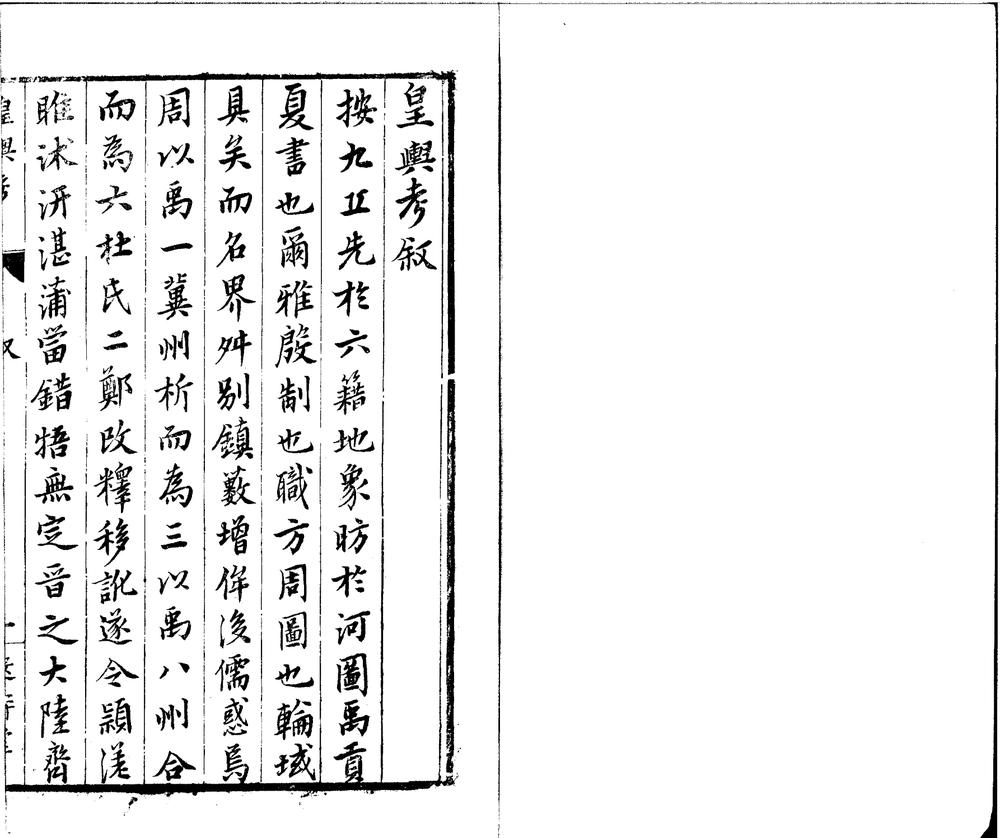 皇輿考叙
按九丘先於六籍地象昉於河圖禹貢
夏書也爾雅殷制也職方周圖也輪域
具矣而名界舛别鎮藪增侔後儒惑焉
周以禹一冀州析而為三以禹八州合
而為六杜氏二鄭改釋移訛遂令潁溠
睢沭汧湛蒲當錯牾無定晉之大陸齊
皇輿考
叙
一